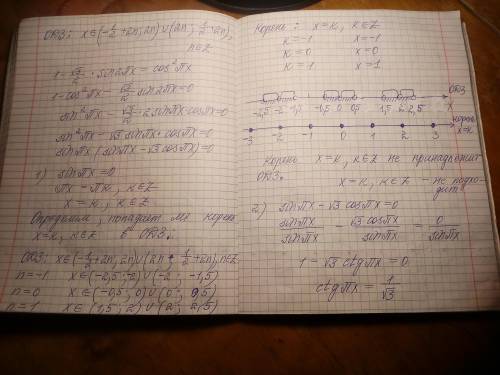 ОДЗ: x∈(-1/2+2n; 2n)∪(2n; 1/2+2n),
n∈Z
1-√3/2·sin2πx=cos²πx
1-cos²πx-√3/2 sin2πx=0
sin²πx-√3/2·2sinπx·cosπx=0
sin²πx-√3 sinπx·cosπx=0
sinπx(sinπx-√3 cosπx)=0
1) sinπx=0
πx=πк, к∈Z
x=к, к∈Z
Определим, попадает ли корень
x=к, к∈Z в ОДЗ:
ОДЗ: x∈(-1/2+2n; 2n)∪(2n; 1/2+2n), n∈Z
n=-1 x∈(-2,5; -2)∪(-2; -1,5)
n=0 x∈(-0,5; 0)∪(0; 0,5)
n=1 x∈(1,5; 2)∪(2; 2,5)
Корень: x=к, к∈Z
к=-1 x=-1
к=0 x=0
к=1 x=1
ОДЗ
-2,5 -2 -1,5 -0,5 0 0,5 1,5 2 2,5 x
корень
x=к
-3 -2 -1 0 1 2 3
Корень x=к, к∈Z не принадлежит
ОДЗ.
x=к, к∈Z - не подхо-
дит
2) sinπx-√3 cosπx=0
sinπx/sinπx - √3 cosπx/sinπx = 0/sinπx
1-√3 ctgπx=0
ctgπx=1/√3